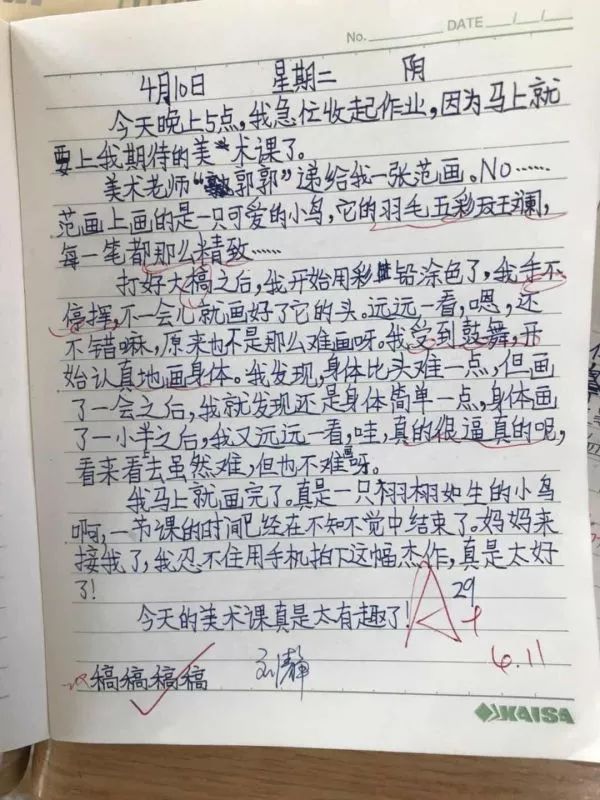 No. DATE / /
4月10日 星期二 阴
今天晚上5点，我急忙收起作业，因为马上就
要上我期待的美术课了。
美术老师“郭郭”递给我一张范画。No……
范画上画的是一只可爱的小鸟，它的羽毛五彩斑斓，
每一笔都那么精致……
打好大稿之后，我开始用彩铅涂色了，我手不
停挥，不一会儿就画好了它的头。远远一看，嗯，还
不错嘛，原来也不是那么难画呀。我受到鼓舞，开
始认真地画身体。我发现，身体比头难一点，但画
了一会之后，我就发现还是身体简单一点，身体画
了一小半之后，我又远远一看，哇，真的很逼真的呢，
看来看去虽然难，但也不难画呀。
我马上就画完了。真是一只栩栩如生的小鸟
啊，一节课的时间已经在不知不觉中结束了。妈妈来
接我了，我忍不住用手机拍下这幅杰作，真是太好
了！
今天的美术课真是太有趣了！ A+ 29
6.11
稿稿稿稿
KAISA